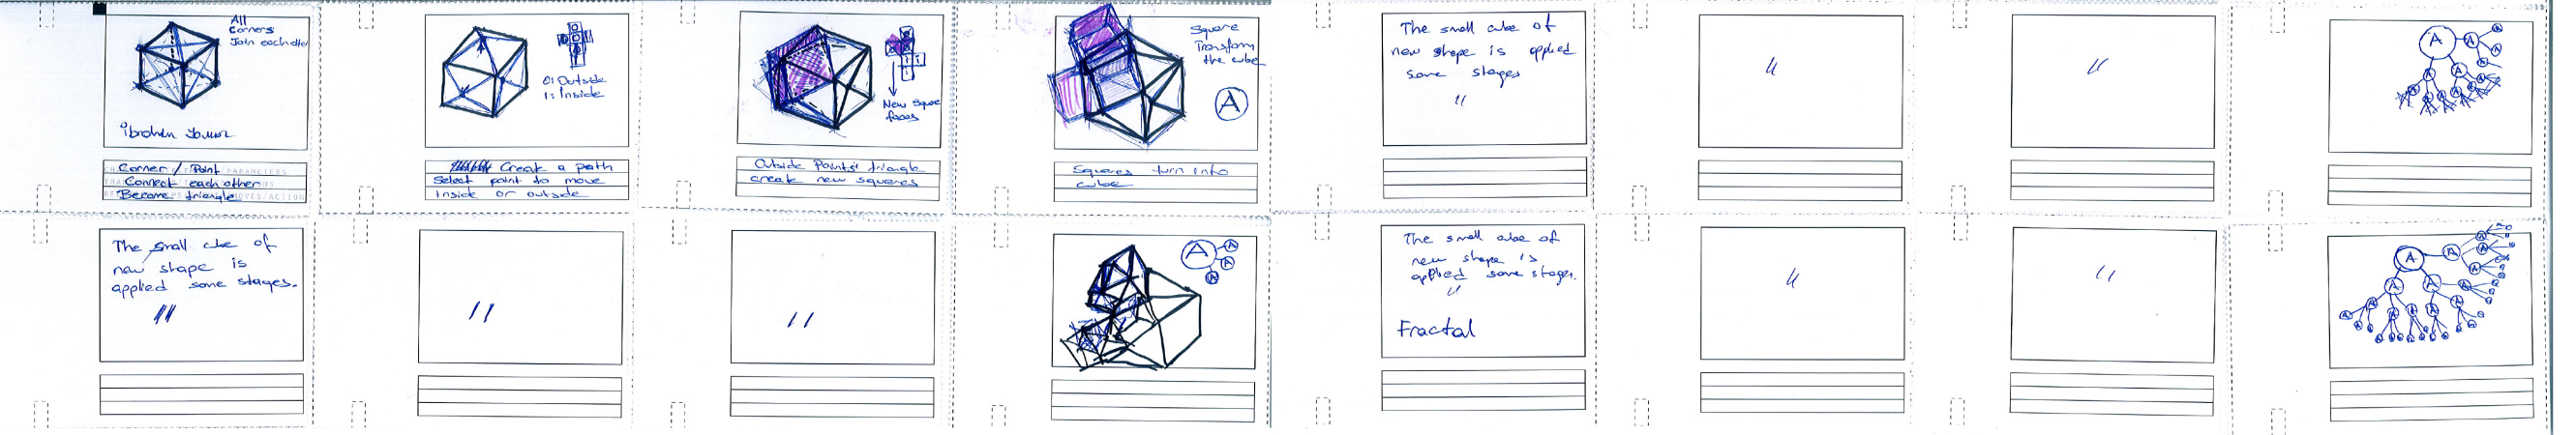 All
Corners
Join each other
Corner / Point
Connect each other
Become triangle
O: Outside
1: Inside
Create a path
Select point to move
Inside or outside
New Square
faces
Outside Points triangle
create new squares
Square
Transform
the cube
A
Squares turn into
cube
The small cube of
new shape is applied
some stages
"
"
"
A
The small cube of
new shape is
applied some stages.
"
"
"
A
The small cube of
new shape is
applied some stages.
"
Fractal
"
"
A